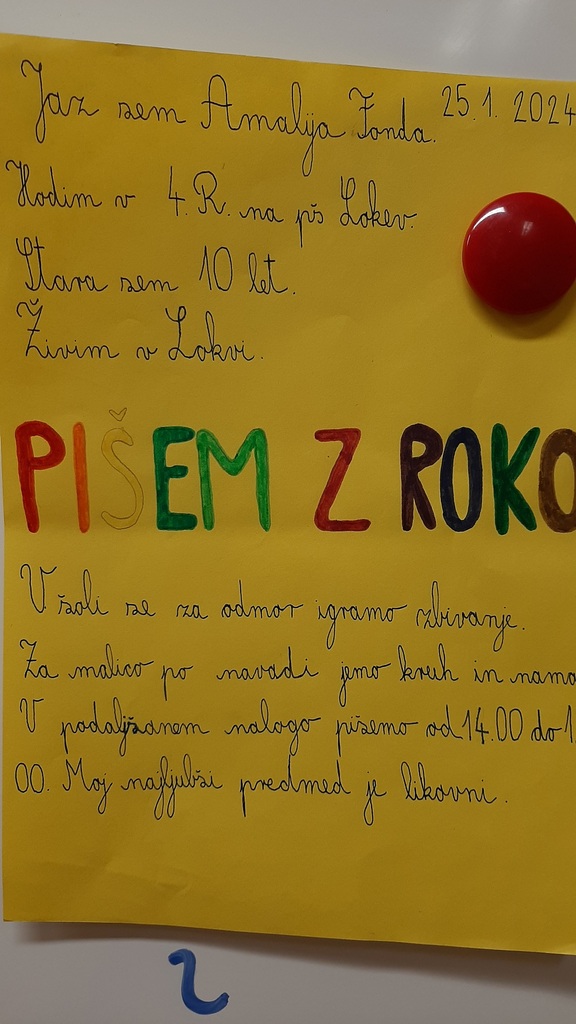 Jaz sem Amalija Fonda. 25.1.2024
Hodim v 4.R. na pš Lokev.
Stara sem 10 let.
Živim v Lokvi.
PIŠEM Z ROKO
V šoli se za odmor igramo zbivanje.
Za malico po navadi jemo kruh in nama
V podaljšanem nalogo pišemo od 14.00 do 1
00. Moj najljubši predmed je likovni.
2